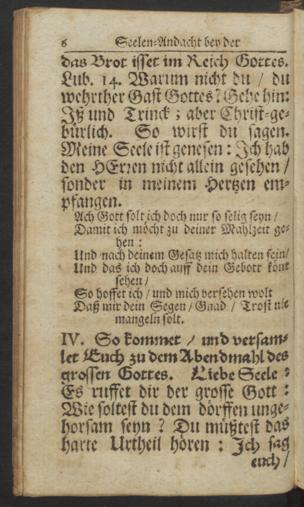 6 Seelen-Andacht bey der
das Brot isset im Reich Gottes.
Lub. 14. Warum nicht du / du
wehrther Gast Gottes? Gehe hin:
Iß und Trinck; aber Christ-ge-
bürlich. So wirst du sagen.
Meine Seele ist genesen: Ich hab
den HErren nicht allein gesehen /
sonder in meinem Hertzen em-
pfangen.
Ach Gott solt ich doch nur so selig seyn /
Damit ich möcht zu deiner Mahlzeit ge-
hen:
Und nach deinem Gesatz mich halten fein /
Und das ich doch auff dein Gebott könt
sehen /
So hoffet ich / und mich versehen wolt
Daß mir dein Segen / Gnad / Trost nie
mangeln solt.
IV. So kommet / und versam-
let Euch zu dem Abendmahl des
grossen Gottes. Liebe Seele:
Es ruffet dir der grosse Gott:
Wie soltest du dem dörffen unge-
horsam seyn? Du müßtest das
harte Urtheil hören: Ich sag
euch /